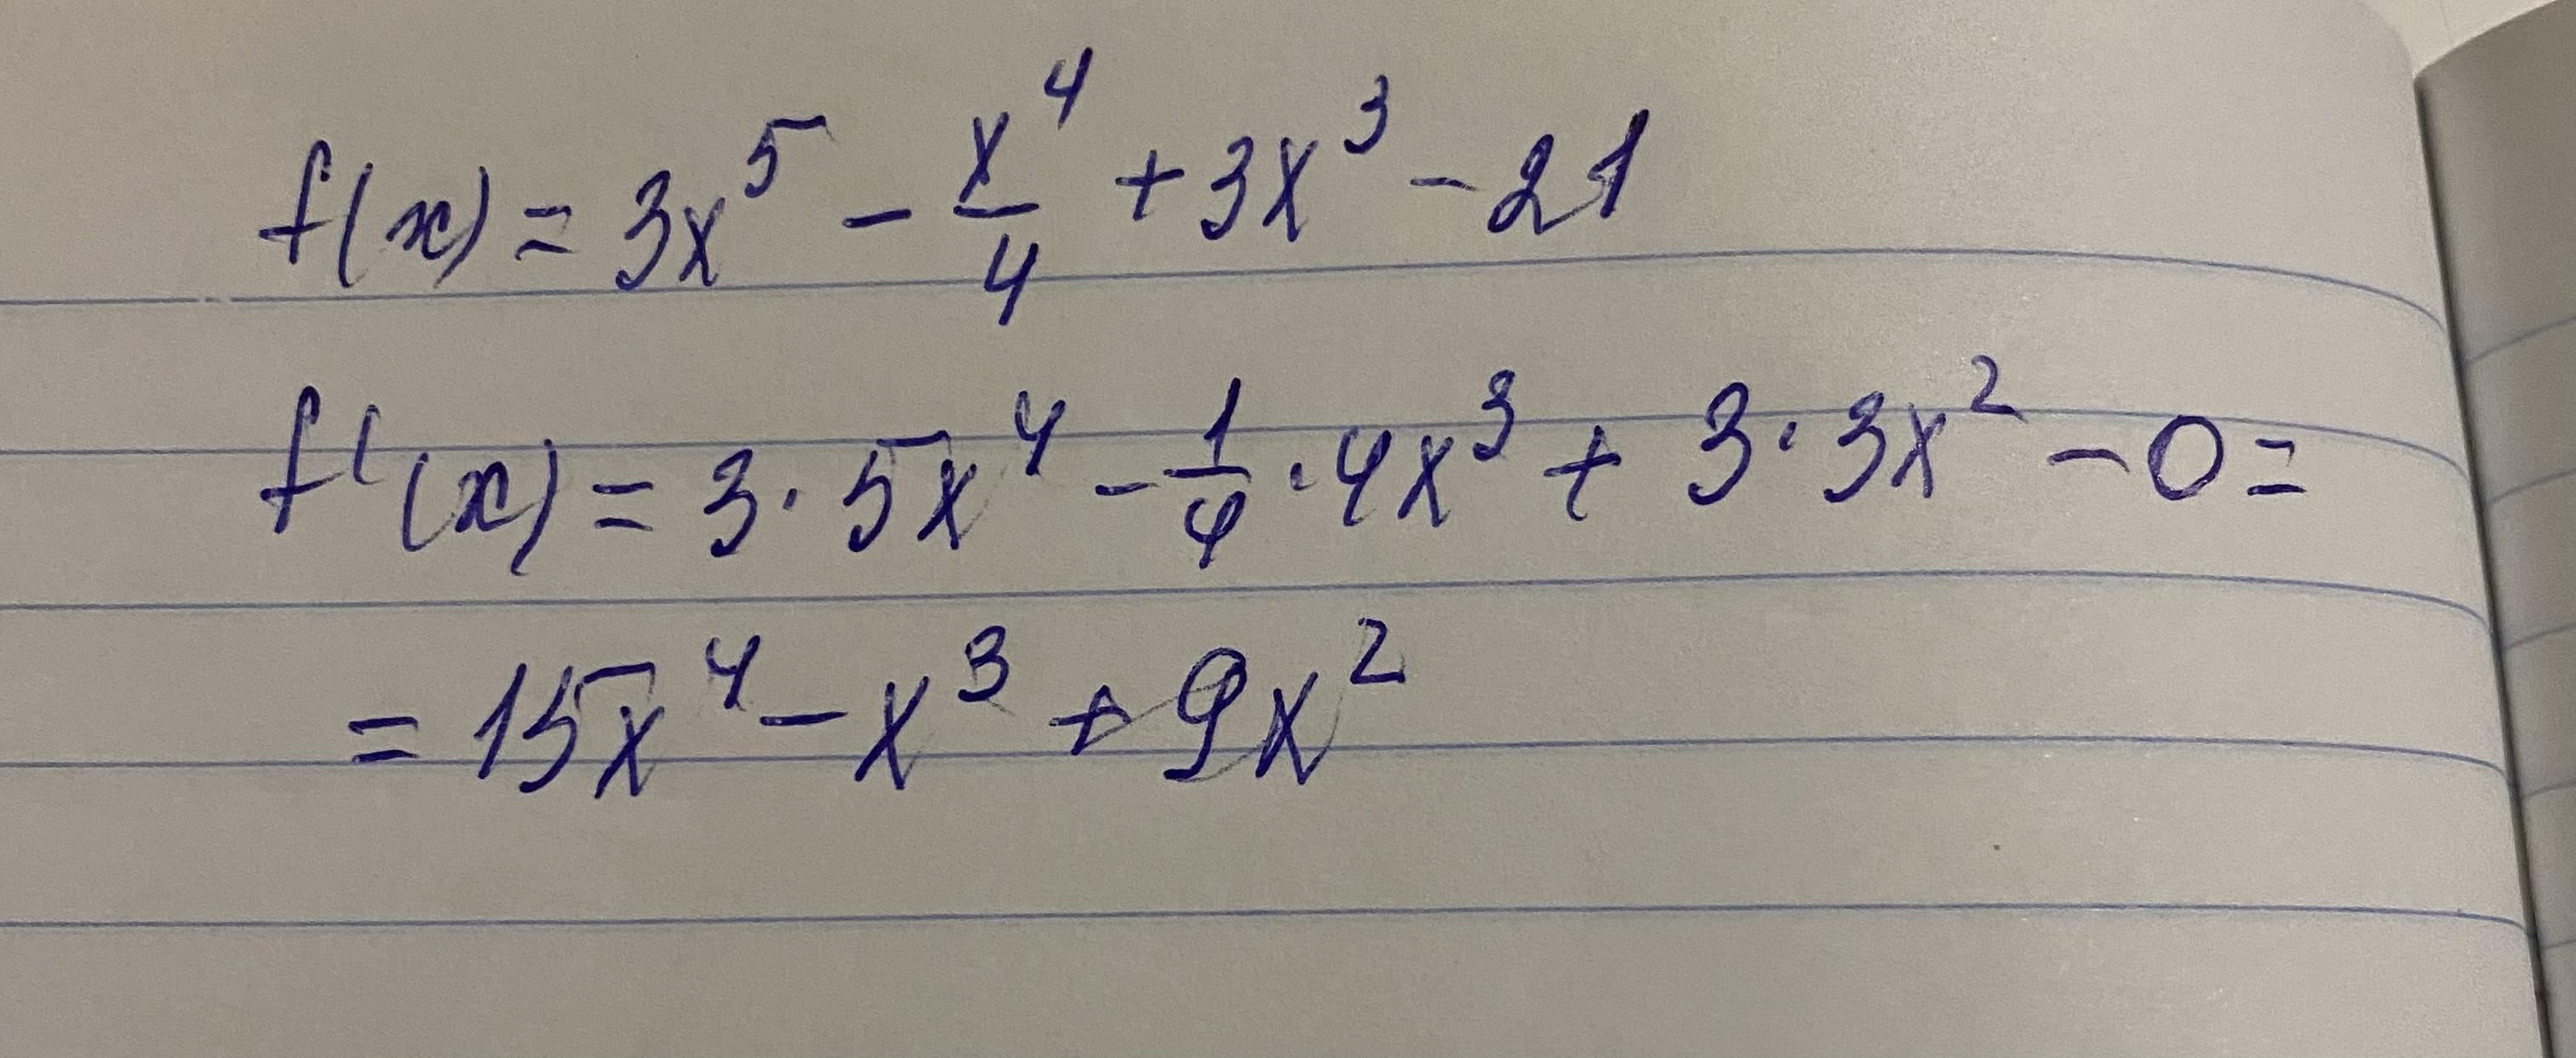 f(x) = 3x⁵ - x⁴/4 + 3x³ - 21
f'(x) = 3·5x⁴ - 1/4·4x³ + 3·3x² - 0 =
= 15x⁴ - x³ + 9x²